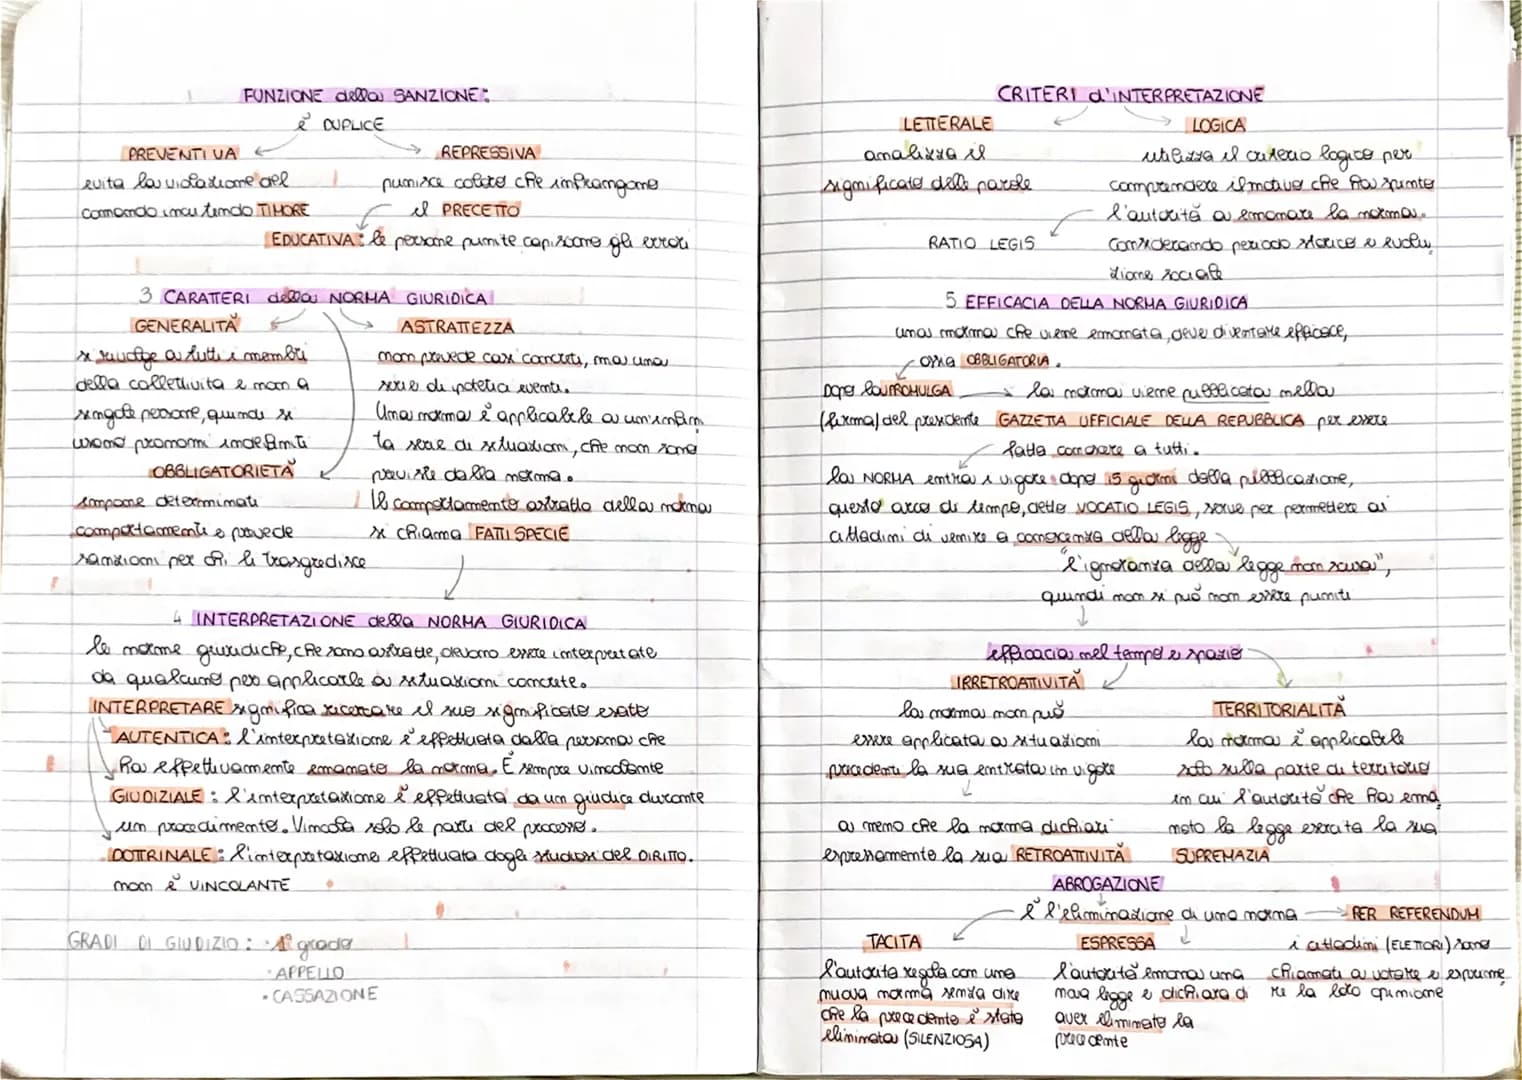 FUNZIONE della SANZIONE:
è DUPLICE
PREVENTIVA
evita la violazione del
comando incutendo TIMORE
REPRESSIVA
punisce coloro che infrangono
il PRECETTO
EDUCATIVA: le persone punite capiscono gli errori
3 CARATTERI della NORMA GIURIDICA
GENERALITÀ
si rivolge a tutti i membri
della collettività e non a
singole persone, quindi si
usano pronomi indefiniti
OBBLIGATORIETÀ
impone determinati
comportamenti e prevede
sanzioni per chi li trasgredisce
ASTRATTEZZA
non prevede casi concreti, ma una
serie di ipotetici eventi.
Una norma è applicabile a un'infini
ta serie di situazioni, che non sono
previste dalla norma.
Il comportamento astratto della norma
si chiama FATTISPECIE
4 INTERPRETAZIONE della NORMA GIURIDICA
le norme giuridiche, che sono astratte, devono essere interpretate
da qualcuno per applicarle a situazioni concrete.
INTERPRETARE significa ricercare il suo significato esatto
AUTENTICA: l'interpretazione è effettuata dalla persona che
ha effettivamente emanato la norma. È sempre vincolante
GIUDIZIALE: l'interpretazione è effettuata da un giudice durante
un procedimento. Vincola solo le parti del processo.
DOTTRINALE: l'interpretazione effettuata dagli studiosi del DIRITTO.
non è VINCOLANTE
GRADI DI GIUDIZIO: • 1° grado
• APPELLO
• CASSAZIONE
CRITERI d'INTERPRETAZIONE
LETTERALE
analizza il
significato delle parole
LOGICA
utilizza il criterio logico per
comprendere il motivo che ha spinto
l'autorità a emanare la norma.
RATIO LEGIS
considerando periodo storico e evolu
zione sociale
5 EFFICACIA DELLA NORMA GIURIDICA
una norma che viene emanata, deve diventare efficace,
ossia OBBLIGATORIA.
Dopo la PROMULGA
(firma) del presidente
la norma viene pubblicata nella
GAZZETTA UFFICIALE DELLA REPUBBLICA per essere
fatta conoscere a tutti.
la NORMA entra i vigore dopo 15 giorni dalla pubblicazione,
questo arco di tempo, detto VOCATIO LEGIS, serve per permettere ai
cittadini di venire a conoscenza della legge
"l'ignoranza della legge non scusa",
quindi non si può non essere puniti
efficacia nel tempo e spazio
IRRETROATTIVITÀ
la norma non può
essere applicata a situazioni
precedenti la sua entrata in vigore
a meno che la norma dichiari
espressamente la sua RETROATTIVITÀ
TERRITORIALITÀ
la norma è applicabile
solo sulla parte di territorio
in cui l'autorità che ha ema
nato la legge esercita la sua
SUPREMAZIA
ABROGAZIONE
è l'eliminazione di una norma
PER REFERENDUM
i cittadini (ELETTORI) sono
chiamati a votare e esprime
re la loro opinione
TACITA
l'autorità regola con una
nuova norma senza dire
che la precedente è stata
eliminata (SILENZIOSA)
ESPRESSA
l'autorità emana una
nuova legge e dichiara di
aver eliminato la
precedente